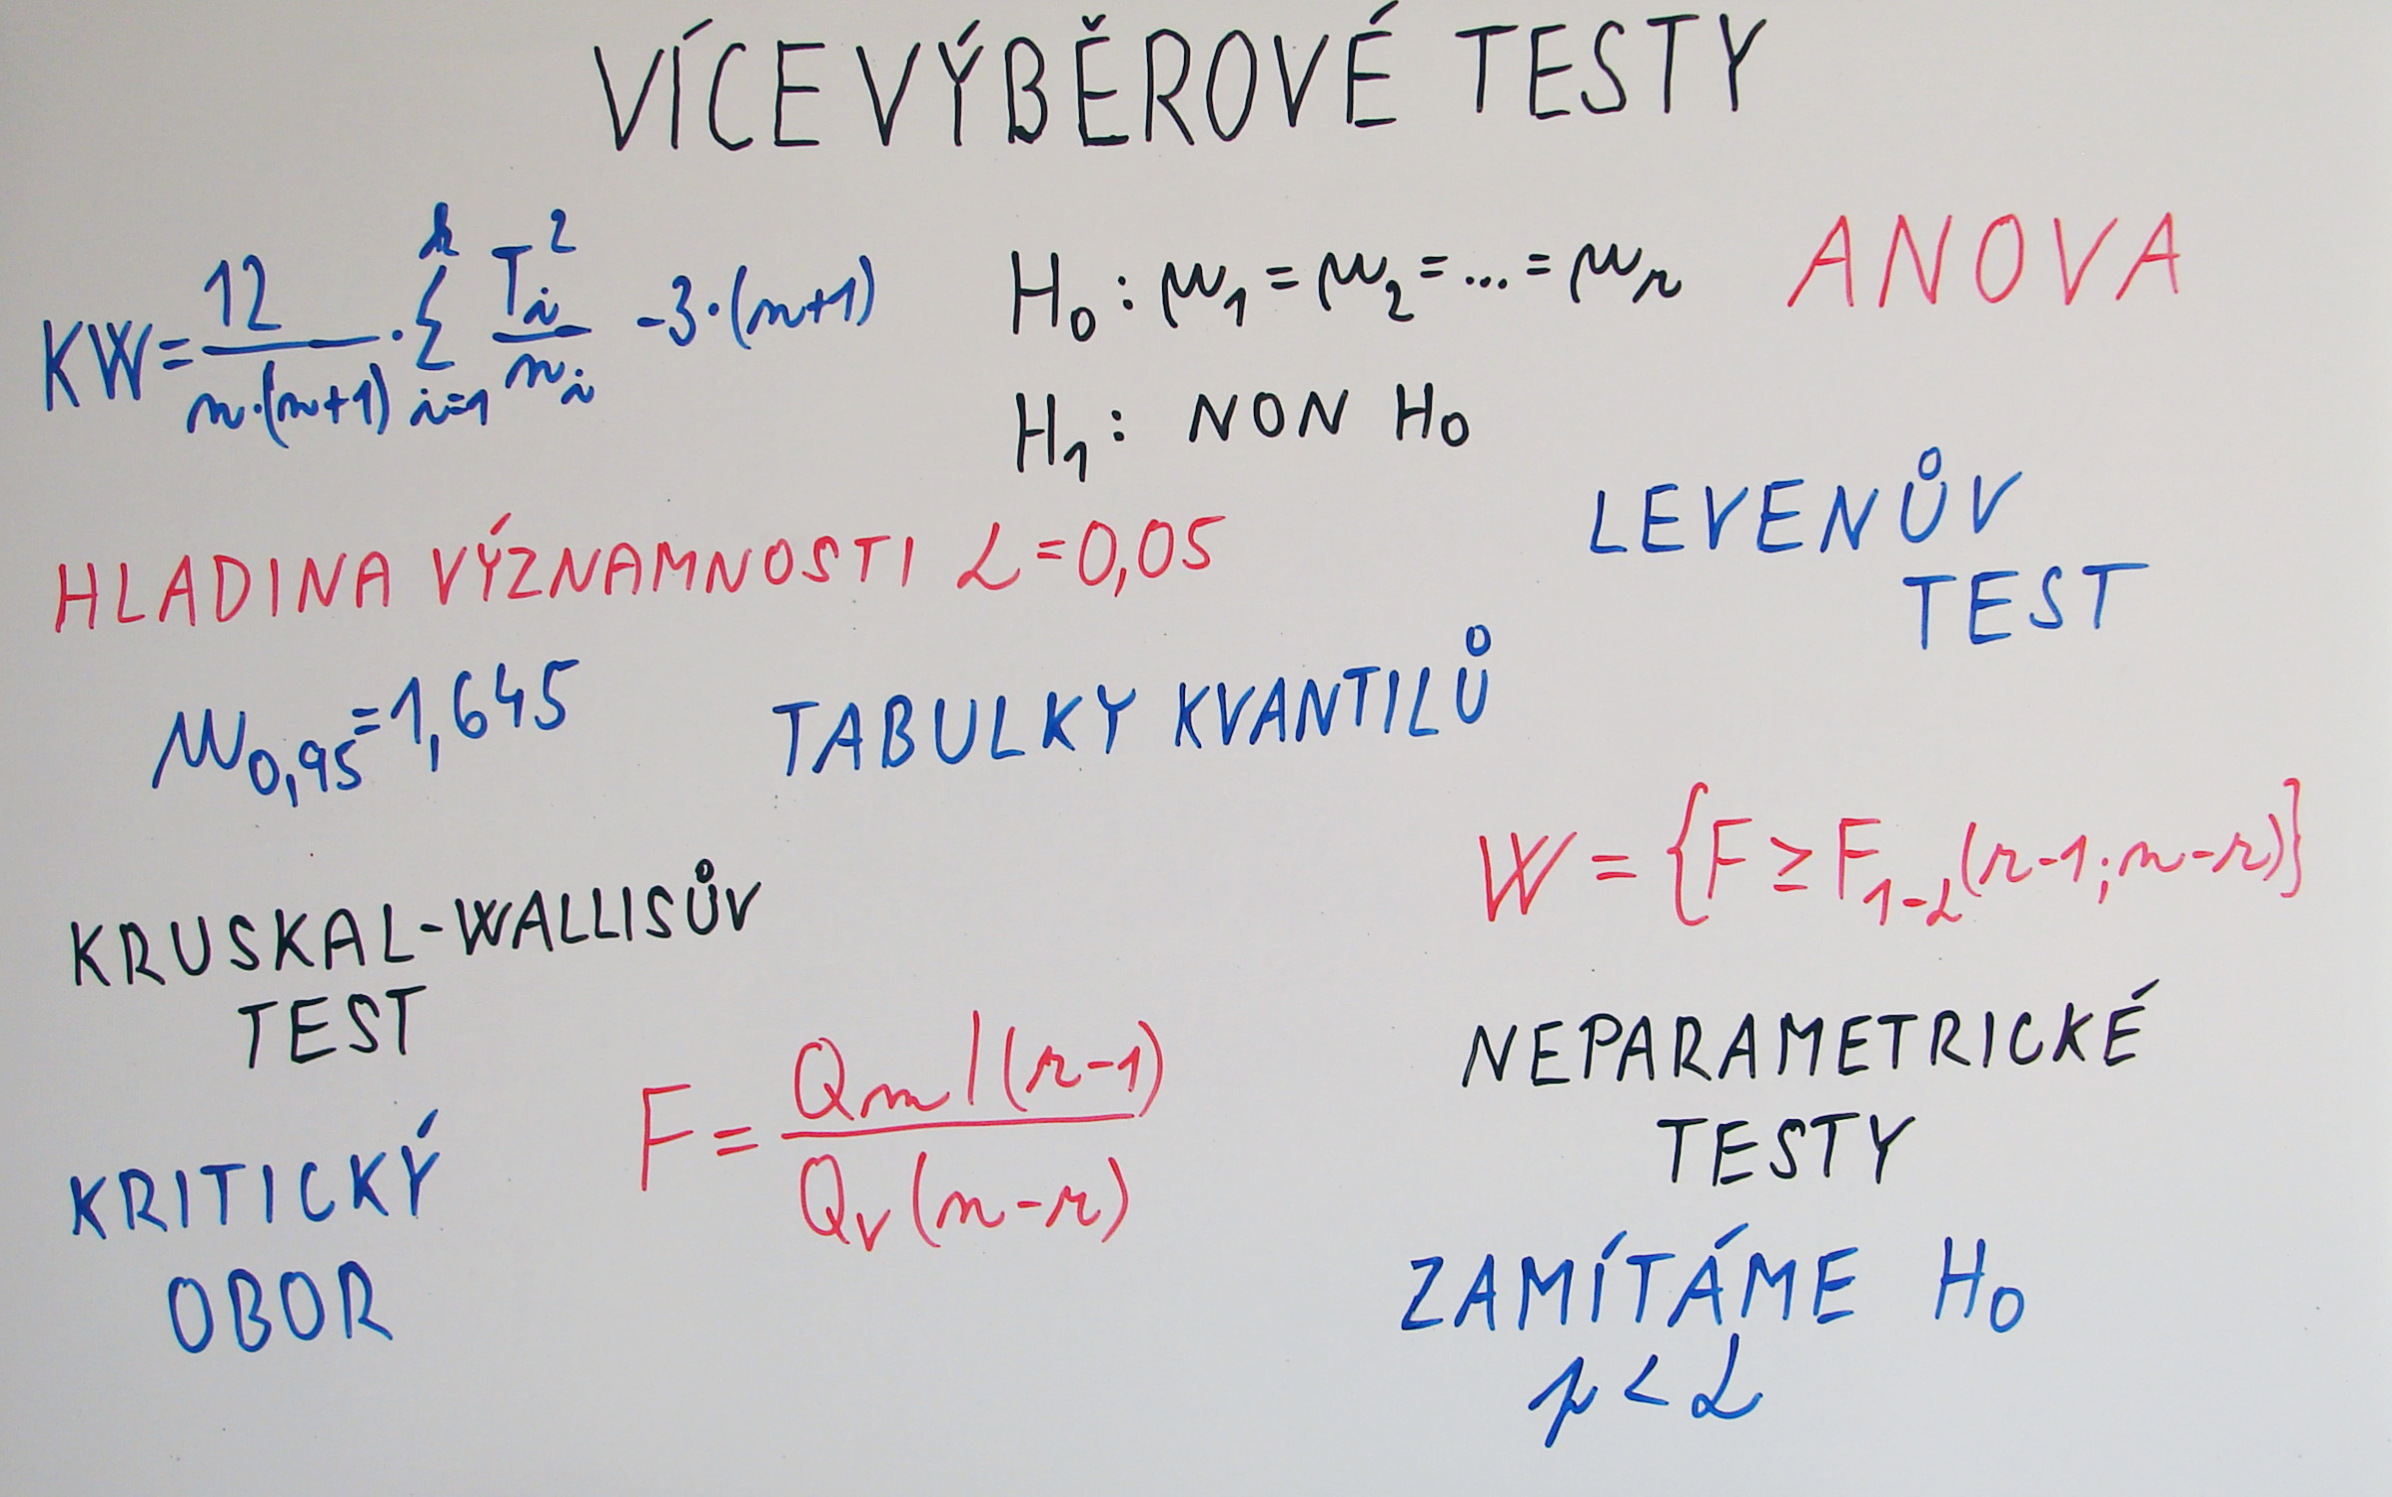 VÍCEVÝBĚROVÉ TESTY
KW = 12 / n·(n+1) · Σ_{i=1}^{k} T_i² / n_i - 3·(n+1)
H₀ : μ₁ = μ₂ = ... = μ_r
ANOVA
H₁ : NON H₀
LEVENŮV
TEST
HLADINA VÝZNAMNOSTI α = 0,05
u_{0,95} = 1,645
TABULKY KVANTILŮ
W = {F ≥ F_{1-α}(r-1; n-r)}
KRUSKAL-WALLISŮV
TEST
F = Q_m / (r-1)
Q_v (n-r)
NEPARAMETRICKÉ
TESTY
KRITICKÝ
OBOR
ZAMÍTÁME H₀
p < α